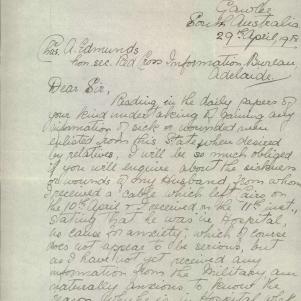 Gawler
South Australia
29th April, 191
Chas. A. Edmunds
hon. sec. Red Cross Information Bureau,
Adelaide.
Dear Sir,
Reading in the daily papers of
your kind undertaking to gaining any
information of sick & wounded men
enlisted from this State, when desired
by relatives, I will be so much obliged
if you will enquire about the sickness
or wounds of my Husband from whom
I received a cable which left
on the 10th April & received on the 14th inst,
stating that he was in Hospital,
no cause for anxiety, which of course
does not appear to be serious, but
as I have not yet received any
information from the Military am
naturally anxious to know the
reason why he is in Hospital